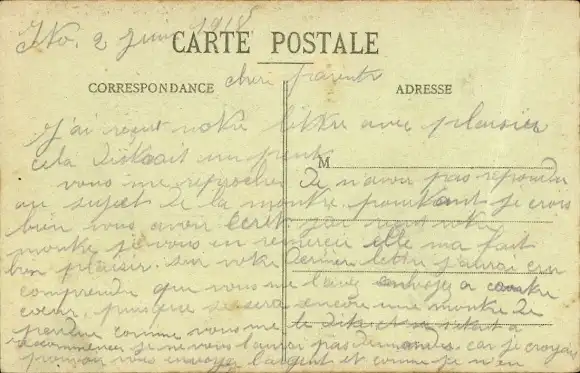 No, 2 juin 1918
CARTE POSTALE
CORRESPONDANCE
cheri parents
ADRESSE
J'ai reçut notre lettre avec plaisir
cela distrait un peut
M
vous me reprocher de n'avoir pas repondu
au sujet de la montre pourtant je crois
bien vous avoir écrit j'ai reçut votre
montre je vous en remercie elle ma fait
bon plaisir. Sur votre dernier lettre j'aurai cru
comprendre que vous me l'avez envoyez a contre
cœur, puisque se sera encore une montre de
perdue comme vous me le dite et si s'etait a
recommencer je ne vous l'aurai pas demander car je croyai
pouvoir vous envoyer l'argent et comme je n'en